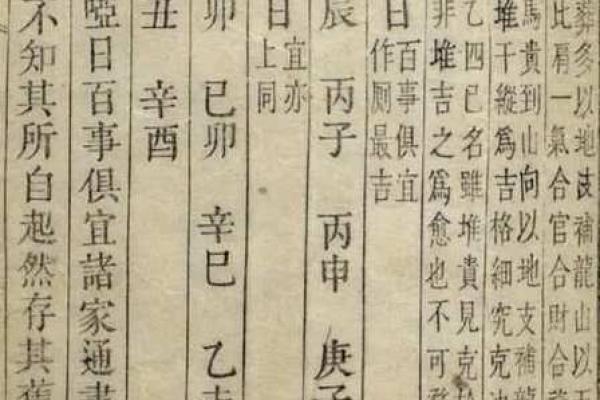 葬多以地支補龍山以
比肩一氣合官合財合
馬貴到山向以地支補龍
堆干縱爲吉格細究克
乙四巳名雖堆貴見克
非堆吉之爲愈也不可
日
百事俱宜
作厠最吉
辰 丙子 丙申 庚子
日
宜亦
上同
卯 已卯 辛巳 乙
丑 辛酉
啞日百事俱宜諸家通書
不知其所自起然存其舊